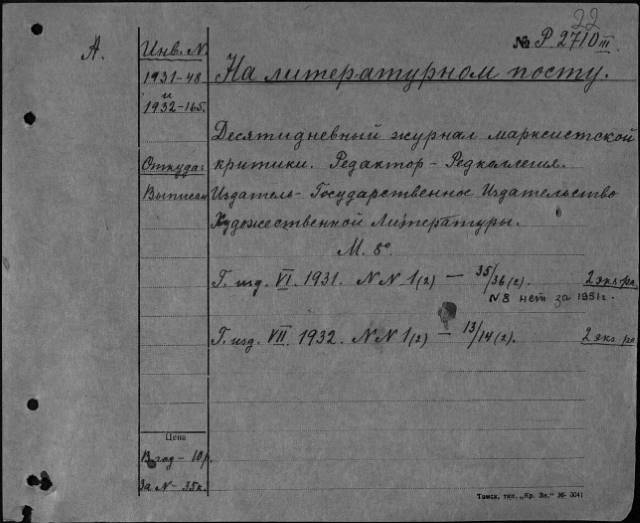 22
А.
№ Р. 2710 III
Инв. №
1931-48
и
1932-165.
На литературном посту.
Десятидневный журнал марксистской
критики. Редактор - Редколлегия.
Откуда:
Выписан
Издатель- Государственное Издательство
Художественной Литературы.
М. 8°
Г. изд. VI. 1931. N N 1(2) — 35/36(2). 2 экз-ра
N 8 нет за 1931 г.
Г. изд. VII. 1932. N N 1(2) — 13/14(2). 2 экз-ра
Цена
В год - 10 р.
За N - 35 к.
Томск, тип. „Кр. Зн.“ № 3041